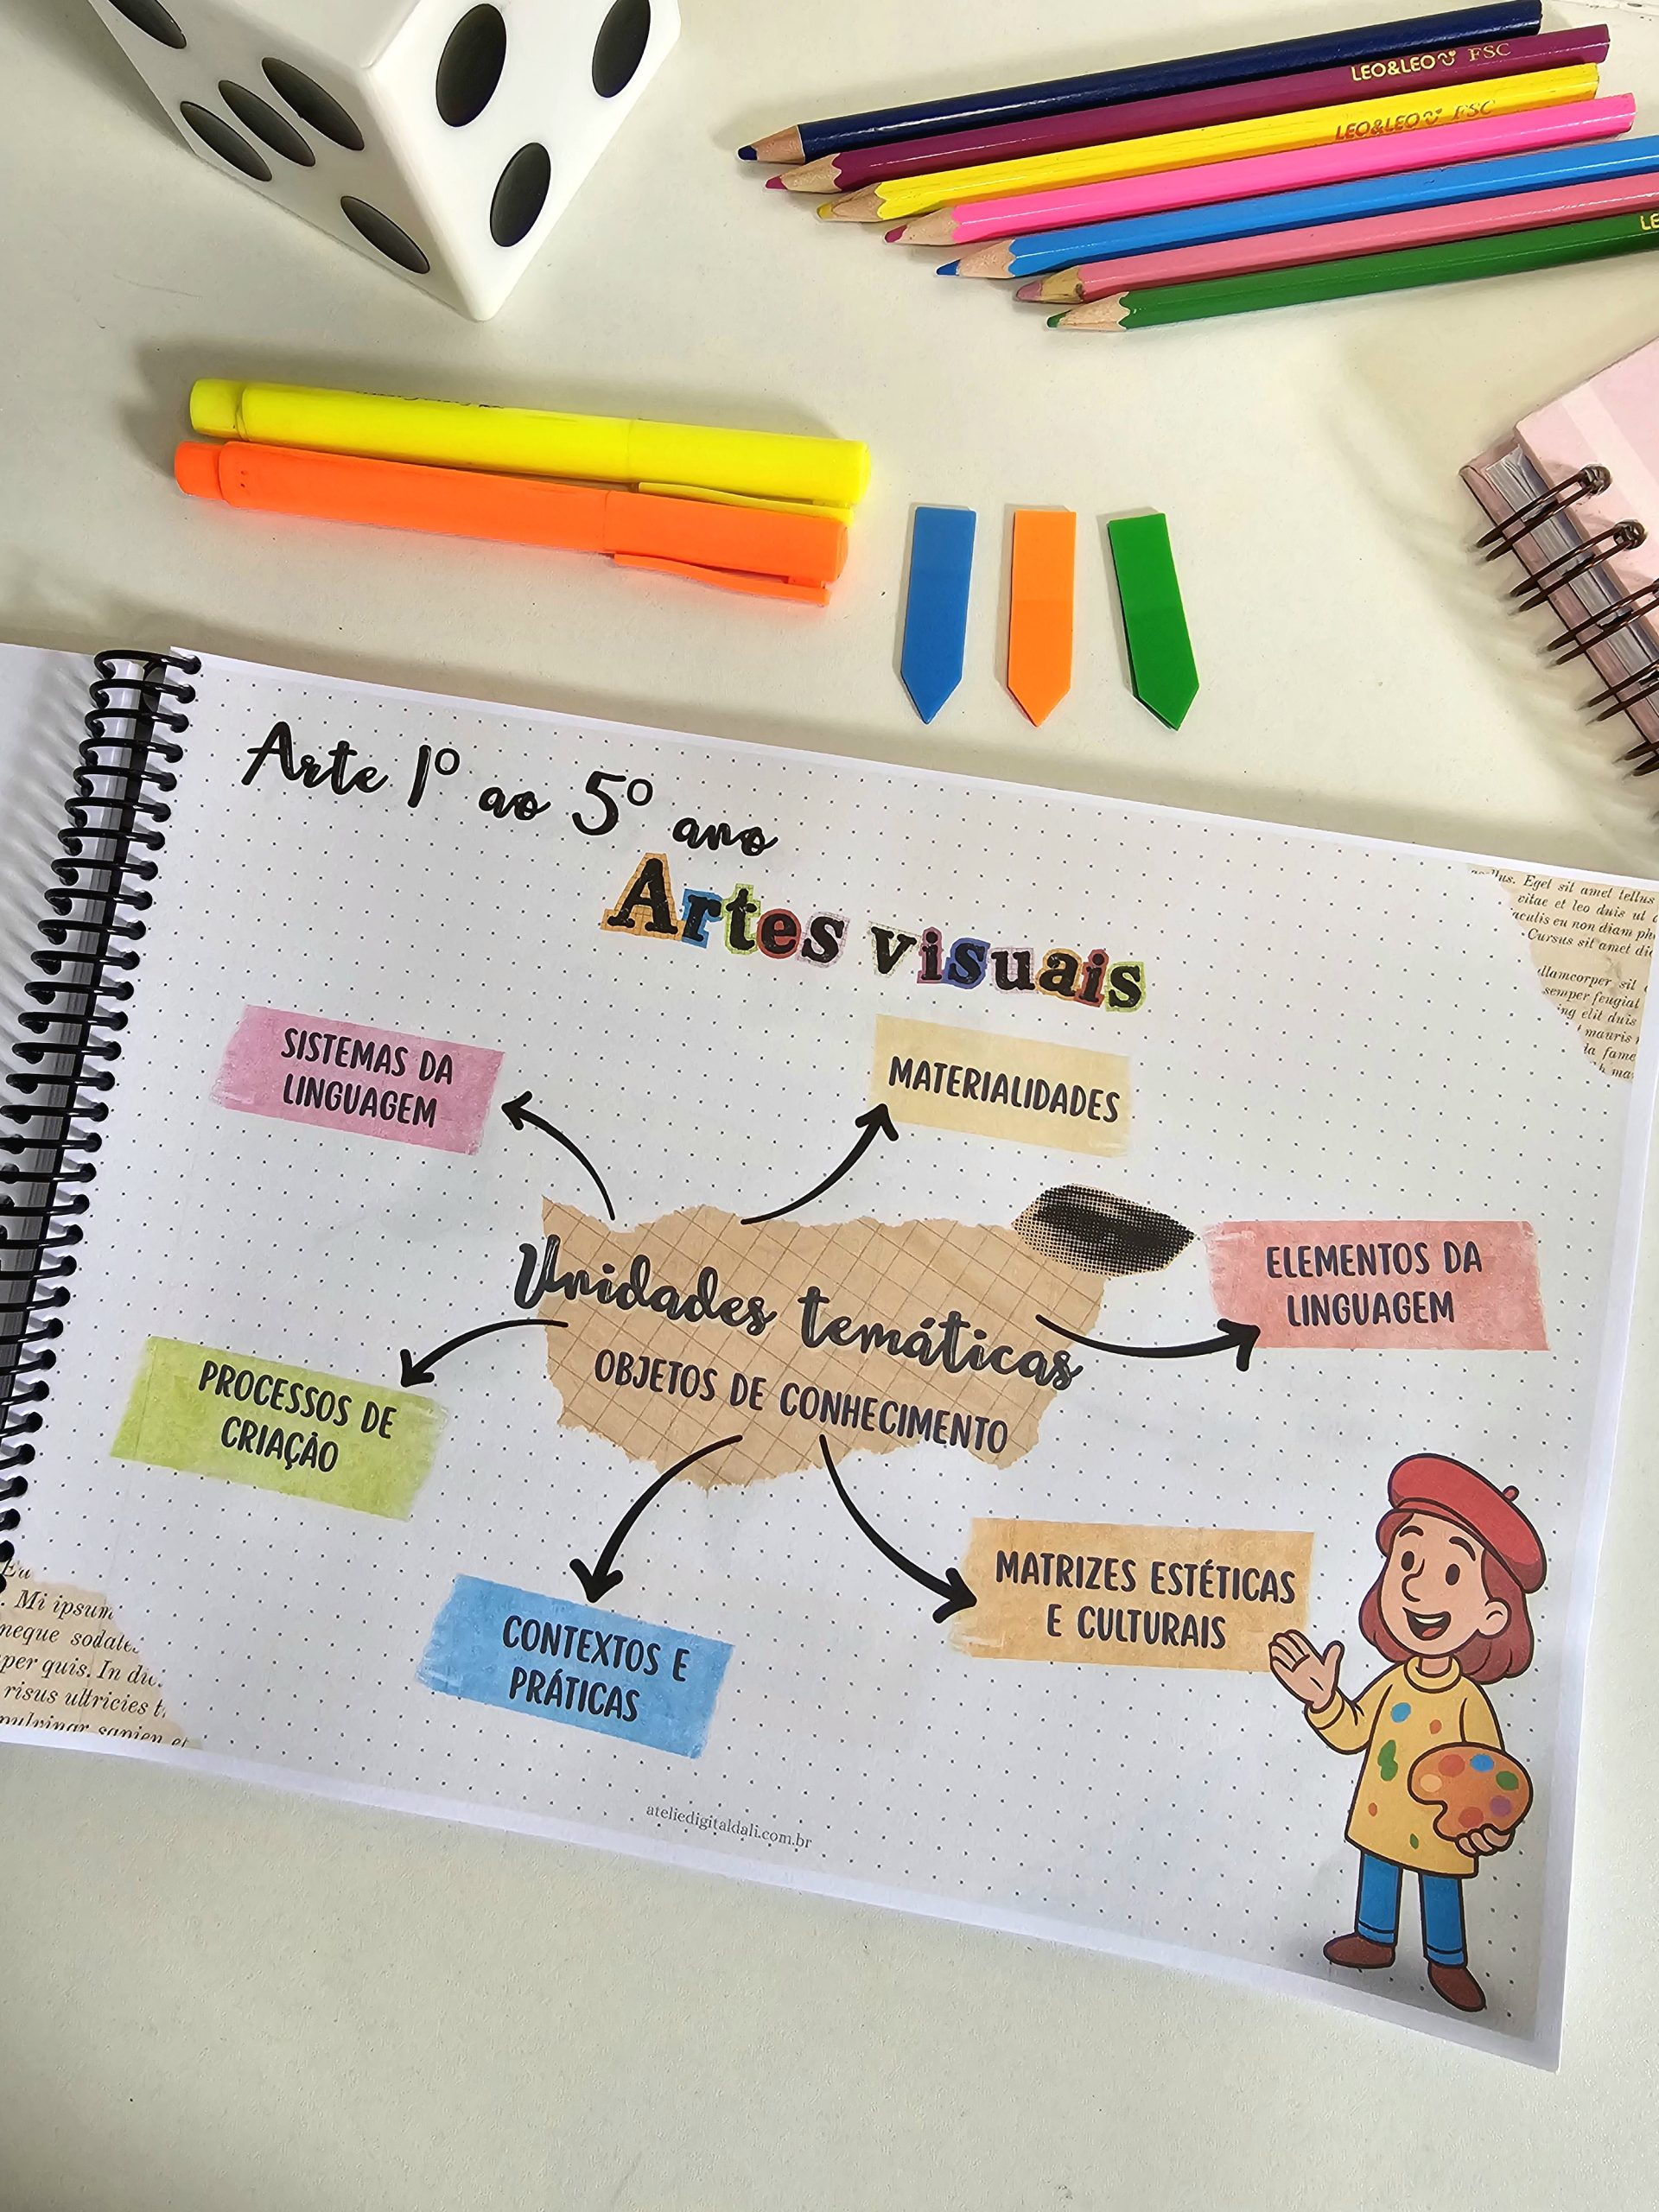 LEO&LEO FSC
LEO&LEO FSC
LE
Arte 1º ao 5º ano
Artes visuais
SISTEMAS DA
LINGUAGEM
MATERIALIDADES
ELEMENTOS DA
LINGUAGEM
Unidades temáticas
OBJETOS DE CONHECIMENTO
PROCESSOS DE
CRIAÇÃO
CONTEXTOS E
PRÁTICAS
MATRIZES ESTÉTICAS
E CULTURAIS
Eget sit amet tellus
vitae et leo duis ut
iaculis eu non diam
Cursus sit amet
ullamcorper sit
semper feugiat
elit duis
mauris
fame
Eu
. Mi ipsum
neque sodales
per quis. In
risus ultricies
pulvinar sapien et
ateliedigitaldali.com.br